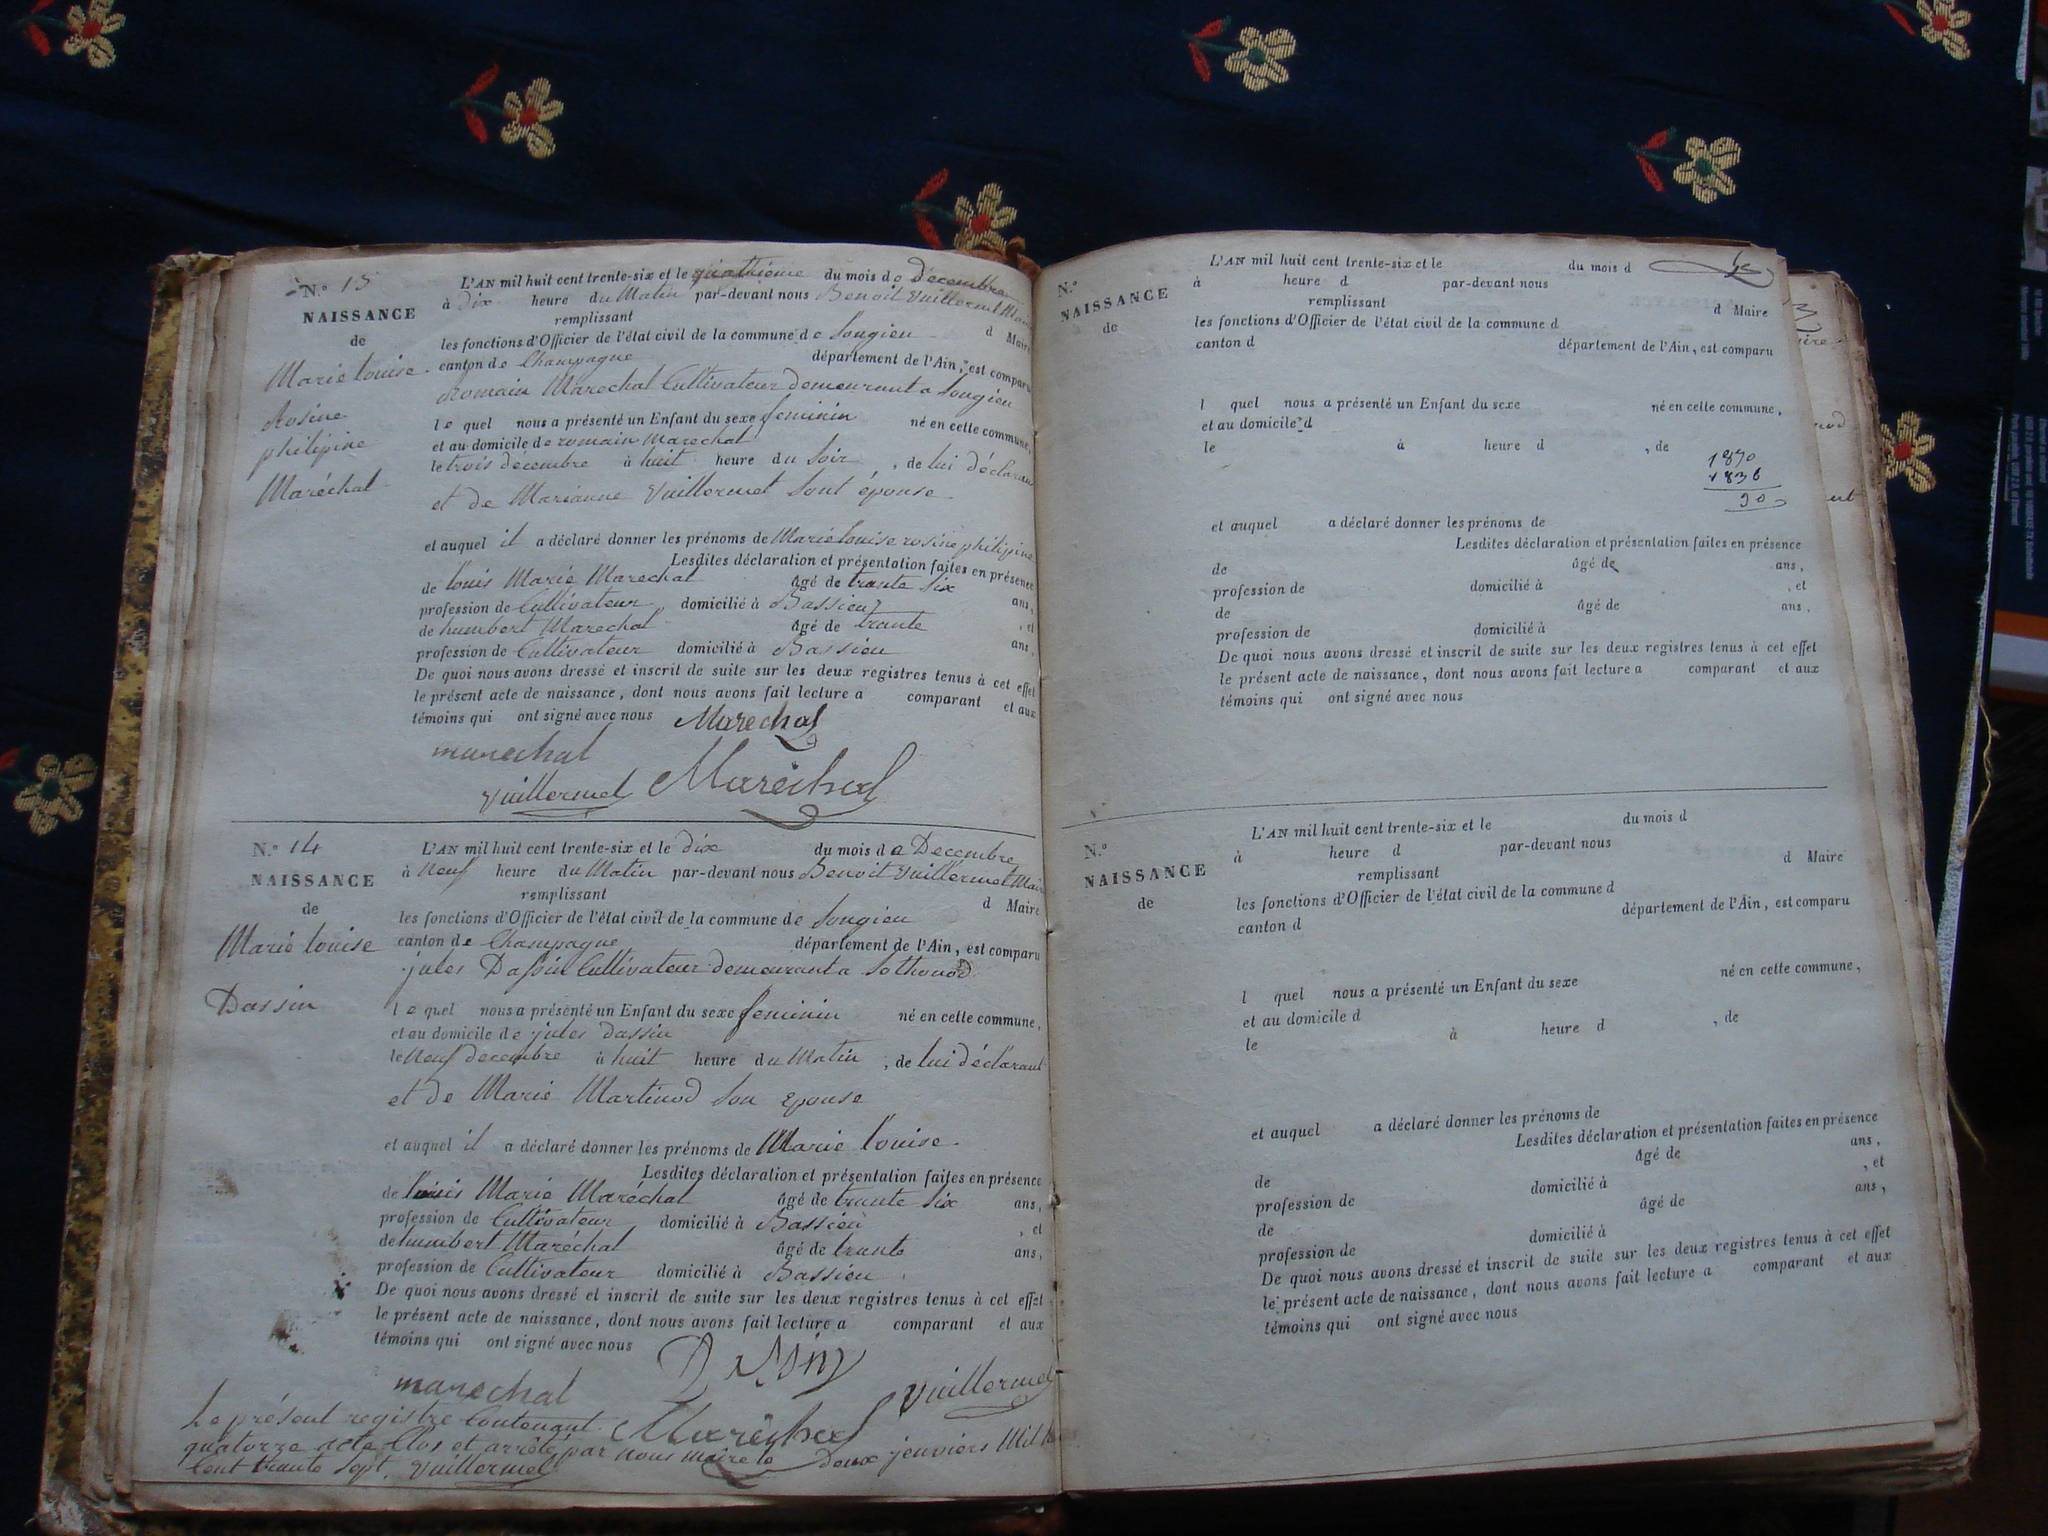 N.o 13
NAISSANCE
de
Marie louise
Rosine
philipine
Maréchal
L'AN mil huit cent trente-six et le quatrième du mois de Decembre
à dix heure du Matin par-devant nous Benoit Vuillermet Maire
remplissant d Maire
les fonctions d'Officier de l'état civil de la commune de Songieu
canton de Champagne département de l'Ain, est comparu
romain Marechal Cultivateur demeurant a Songieu
le quel nous a présenté un Enfant du sexe feminin né en cette commune,
et au domicile de romain Marechal
le trois décembre à huit heure du Soir, de lui déclarant
et de Marianne Vuillermet Sont épouse
et auquel il a déclaré donner les prénoms de Marie louise rosine philipine
Lesdites déclaration et présentation faites en présence
de louis Marie Marechal âgé de trante Six ans,
profession de Cultivateur domicilié à Bassieu, et
de humbert Marechal âgé de trante ans,
profession de Cultivateur domicilié à Bassieu
De quoi nous avons dressé et inscrit de suite sur les deux registres tenus à cet effet
le présent acte de naissance, dont nous avons fait lecture a comparant et aux
témoins qui ont signé avec nous Marechal
marechal
Vuillermet Maréchal
N.o 14
NAISSANCE
de
Marie louise
Dassin
L'AN mil huit cent trente-six et le dix du mois de Decembre
à Neuf heure du Matin par-devant nous Benoit Vuillermet Maire
remplissant d Maire
les fonctions d'Officier de l'état civil de la commune de Songieu
canton de Champagne département de l'Ain, est comparu
jules Dassin Cultivateur demeurant a Sothonod
le quel nous a présenté un Enfant du sexe feminin né en cette commune,
et au domicile de jules Dassin
le Neuf decembre à huit heure du Matin, de lui déclarant
et de Marie Martinod Son epouse
et auquel il a déclaré donner les prénoms de Marie louise
Lesdites déclaration et présentation faites en présence
de louis Marie Maréchal âgé de trante Six ans,
profession de Cultivateur domicilié à Bassieu, et
de humbert Maréchal âgé de trante ans,
profession de Cultivateur domicilié à Bassieu
De quoi nous avons dressé et inscrit de suite sur les deux registres tenus à cet effet
le présent acte de naissance, dont nous avons fait lecture a comparant et aux
témoins qui ont signé avec nous Dassin
marechal Vuillermet
Le présent registre Contenant Maréchal
quatorze acte Clos et arrêté par nous maire le deux jenviers Mil
Cent trante Sept. Vuillermet
N.o
NAISSANCE
de
L'AN mil huit cent trente-six et le du mois d
à heure d par-devant nous
remplissant d Maire
les fonctions d'Officier de l'état civil de la commune d
canton d département de l'Ain, est comparu
l quel nous a présenté un Enfant du sexe né en cette commune,
et au domicile d
le à heure d , de
1890
1836
et auquel a déclaré donner les prénoms de
Lesdites déclaration et présentation faites en présence
de âgé de ans,
profession de domicilié à , et
de âgé de ans,
profession de domicilié à
De quoi nous avons dressé et inscrit de suite sur les deux registres tenus à cet effet
le présent acte de naissance, dont nous avons fait lecture a comparant et aux
témoins qui ont signé avec nous
N.o
NAISSANCE
de
L'AN mil huit cent trente-six et le du mois d
à heure d par-devant nous
remplissant d Maire
les fonctions d'Officier de l'état civil de la commune d
canton d département de l'Ain, est comparu
l quel nous a présenté un Enfant du sexe né en cette commune,
et au domicile d
le à heure d , de
et auquel a déclaré donner les prénoms de
Lesdites déclaration et présentation faites en présence
de âgé de ans,
profession de domicilié à , et
de âgé de ans,
profession de domicilié à
De quoi nous avons dressé et inscrit de suite sur les deux registres tenus à cet effet
le présent acte de naissance, dont nous avons fait lecture a comparant et aux
témoins qui ont signé avec nous